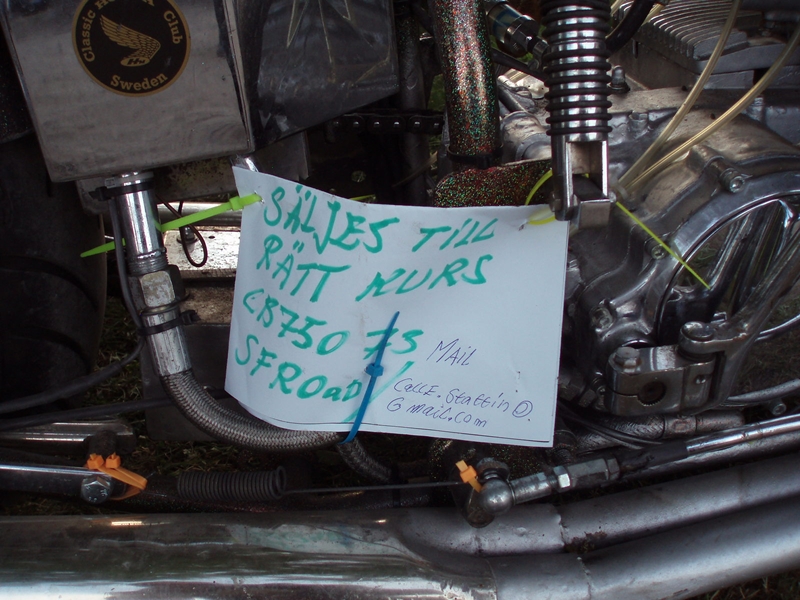 Classic Honda Club
Sweden
SÄLJES TILL
RÄTT KURS
CB750 75
SFROad
MAIL
CallE.Stattin@.
Gmail.com